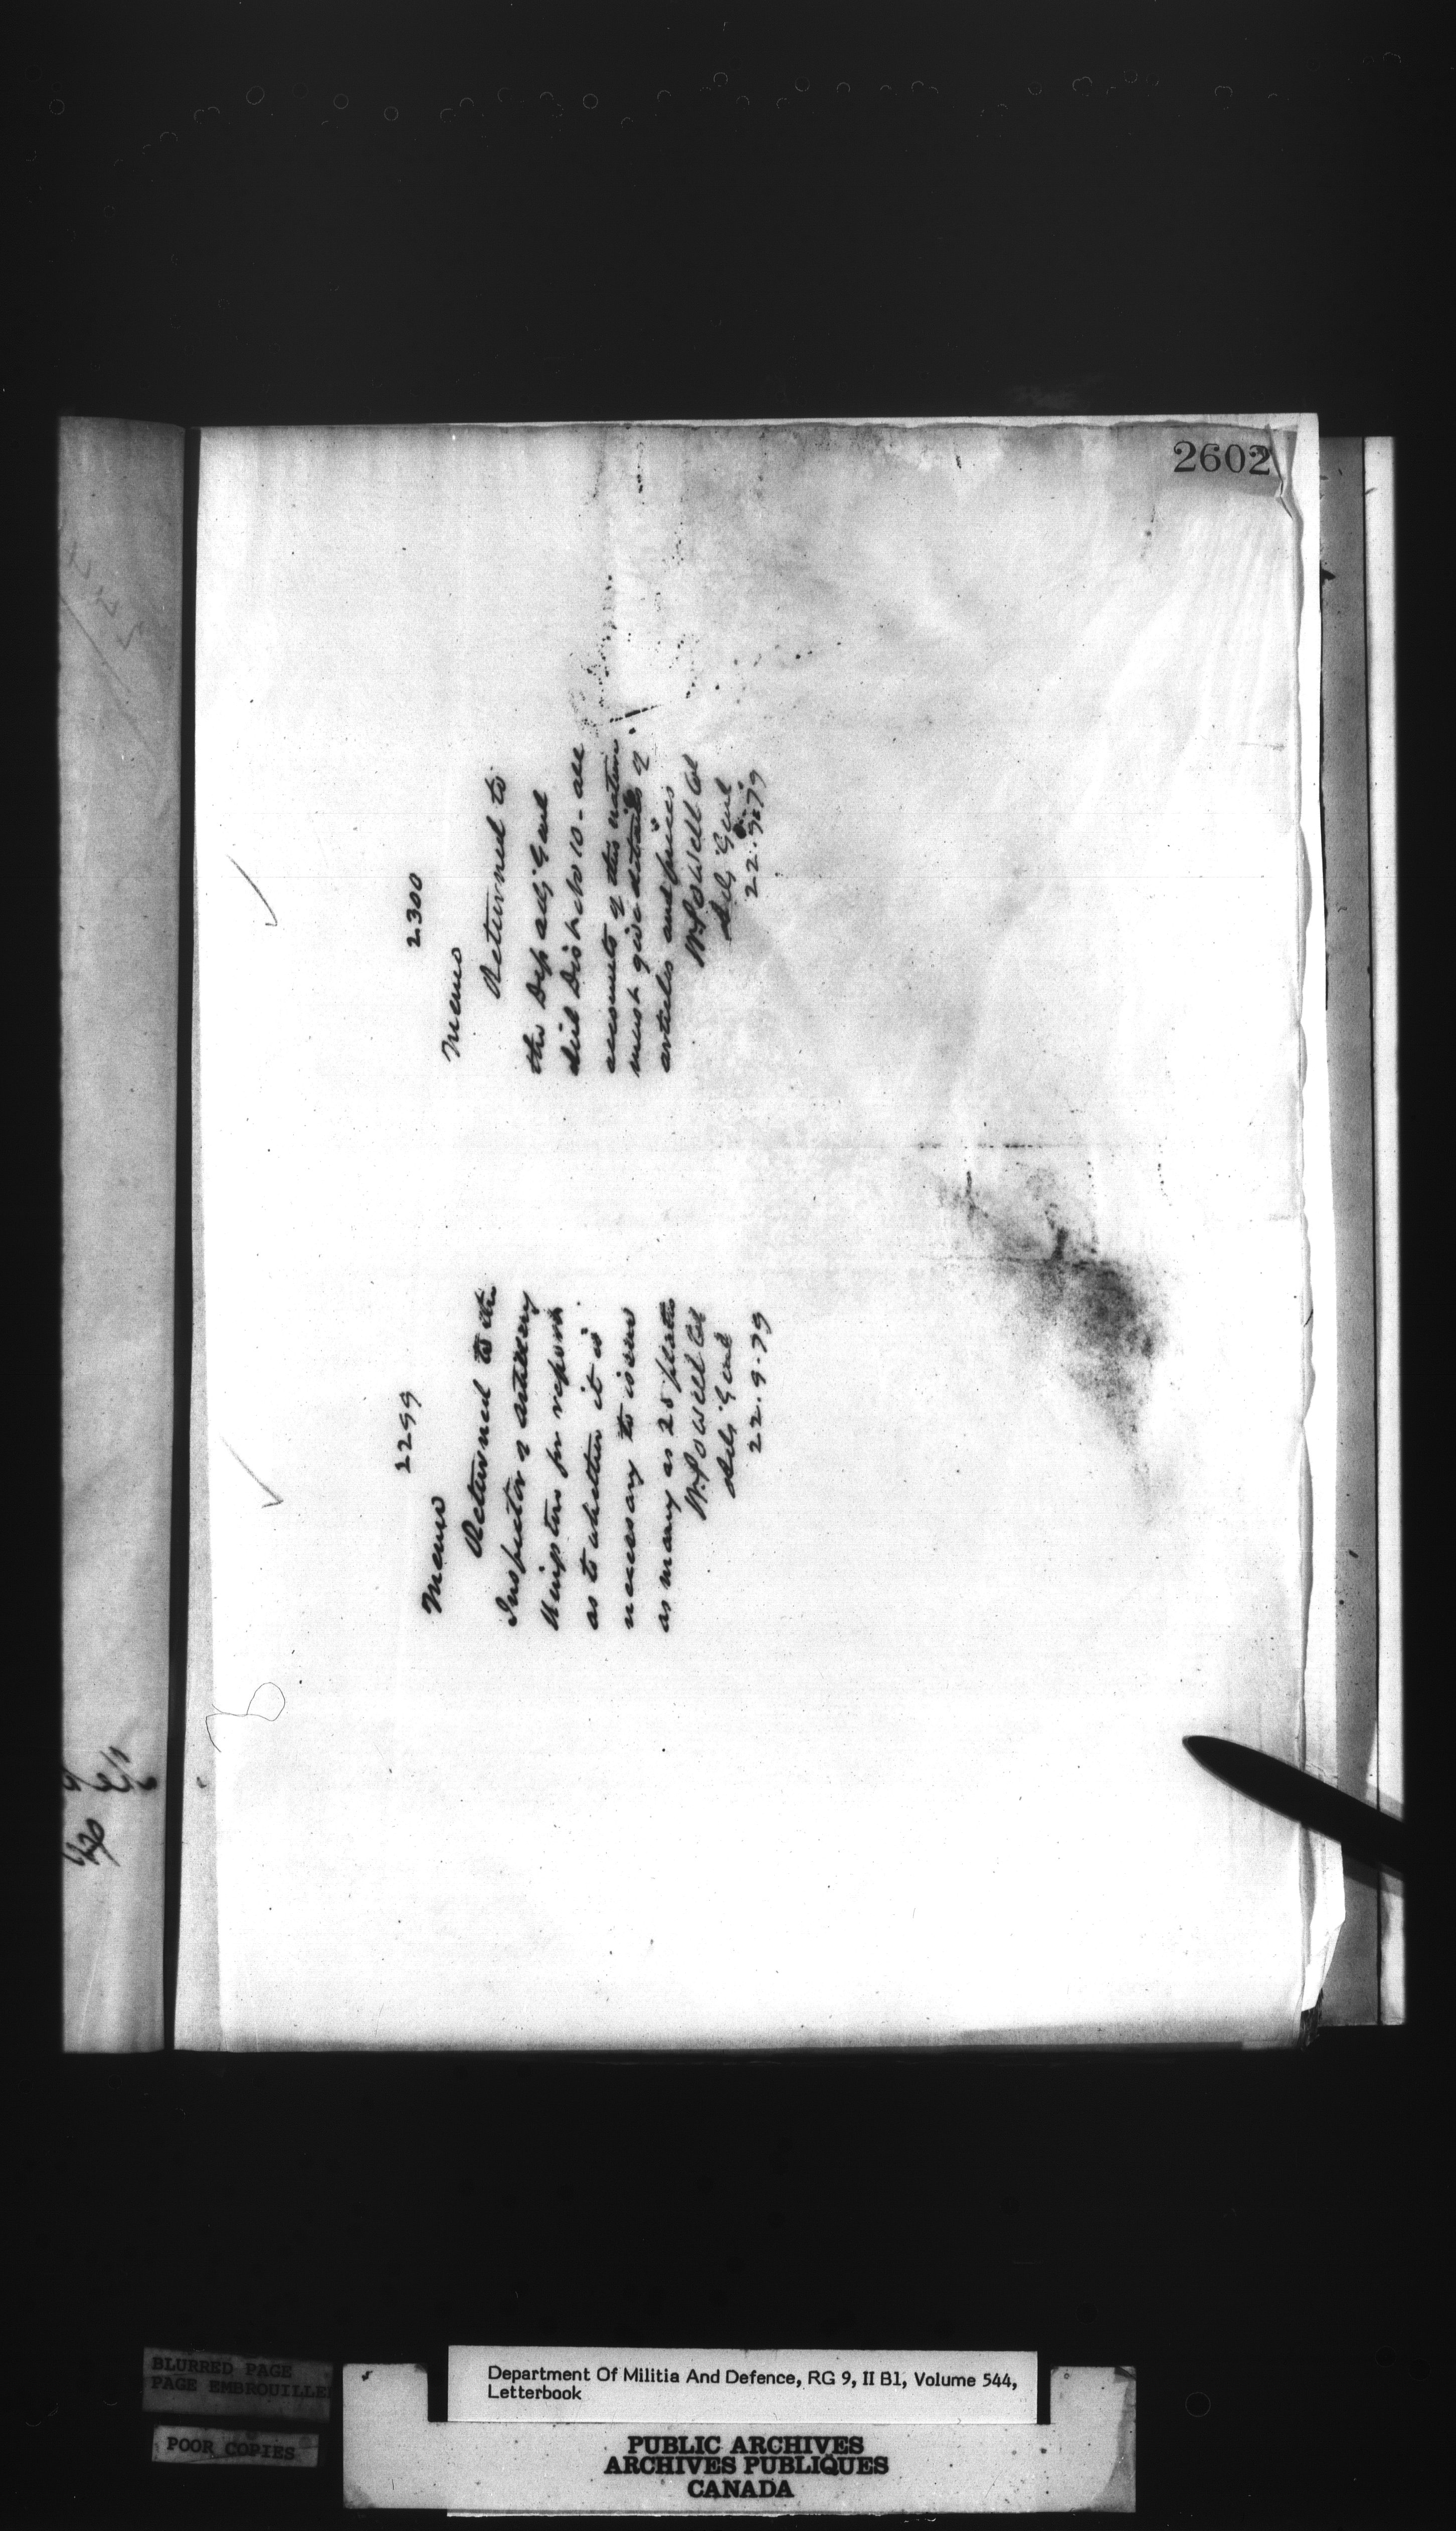 2602
2299
Memo
Returned to the
Inspector of Artillery
Kingston for report
as to whether it is
necessary to issue
as many as 25
W. Powell Col
Adj. Genl
22.9.79
2300
Memo
Returned to
the Dep Adj Genl
Mil Dist No 10 - all
accounts of this nature
must give details of
articles and prices
W. Powell Col
Adj. Genl
22.9.79
BLURRED PAGE
PAGE EMBROUILLEE
POOR COPIES
Department Of Militia And Defence, RG 9, II B1, Volume 544,
Letterbook
PUBLIC ARCHIVES
ARCHIVES PUBLIQUES
CANADA